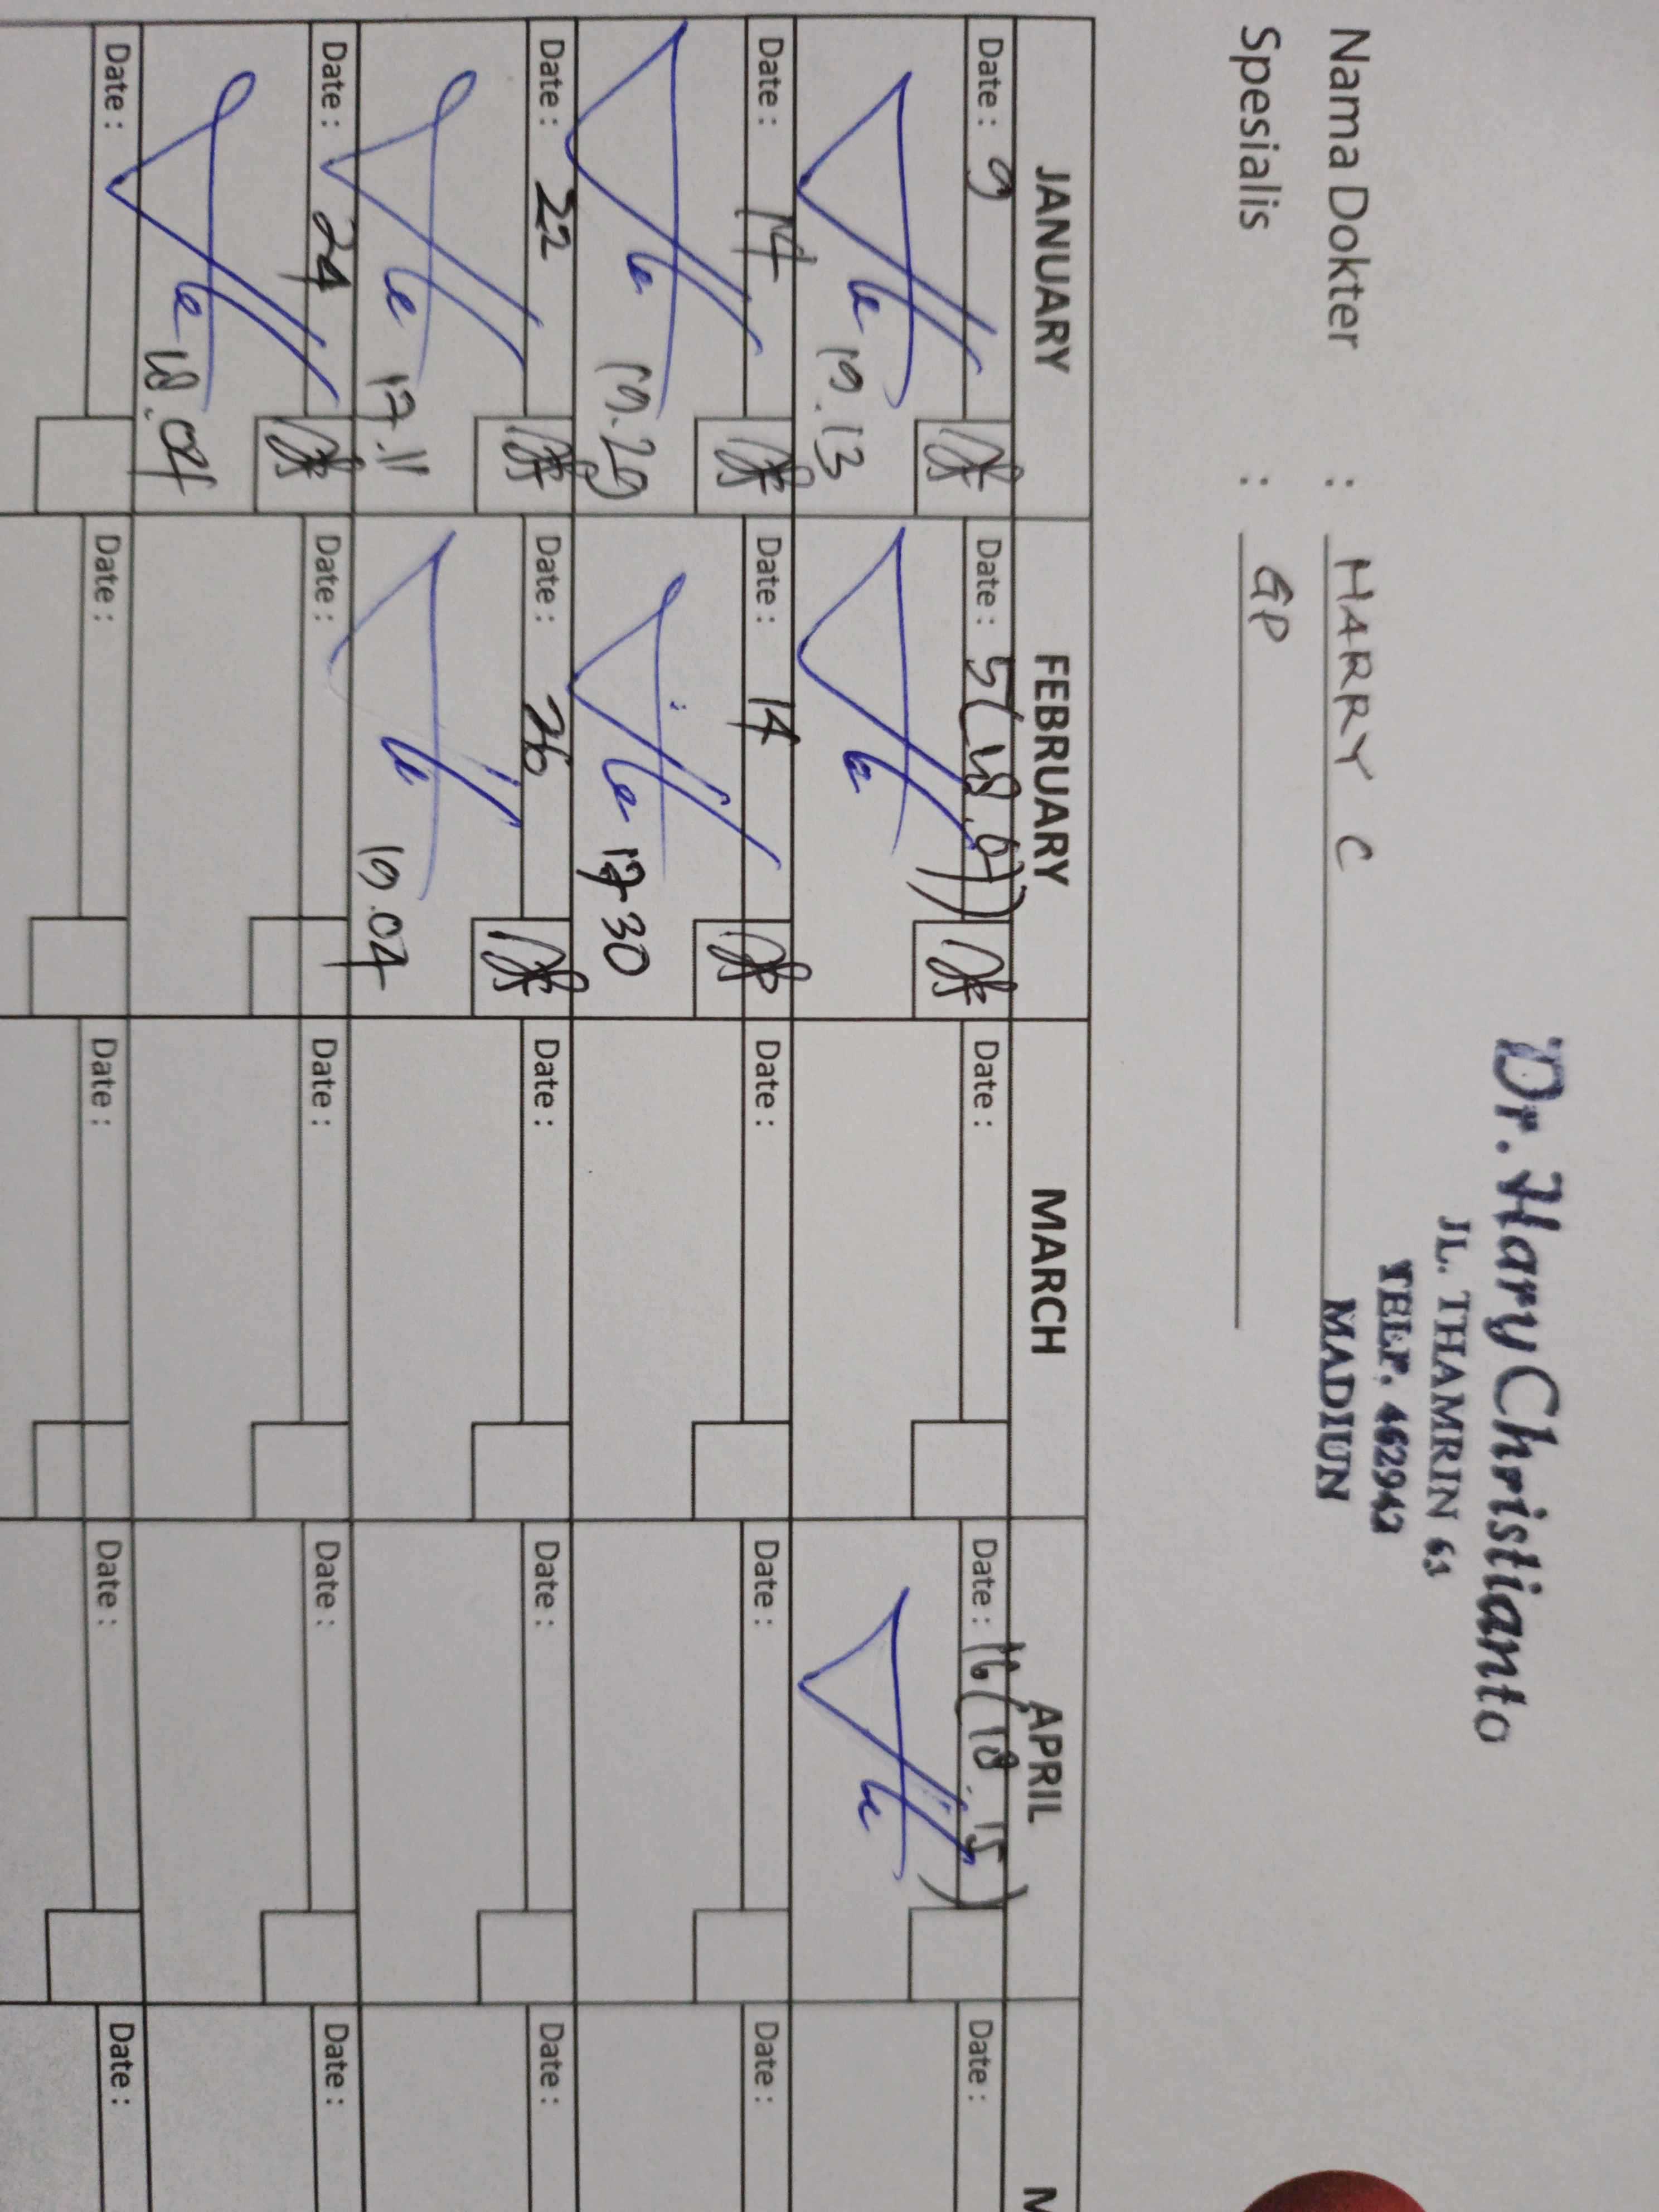 Dr. Hary Christianto
JL. THAMRIN 63
TELP. 462942
MADIUN
Nama Dokter : HARRY C
Spesialis : GP
JANUARY FEBRUARY MARCH APRIL M
Date : 9 Date : 5 (18.07) Date : Date : 16 (18.15) Date :
19.13
Date : 14 Date : 14 Date : Date : Date :
19.29 17.30
Date : 22 Date : 26 Date : Date : Date :
17.11 19.04
Date : 24 Date : Date : Date : Date :
18.04
Date : Date : Date : Date : Date :